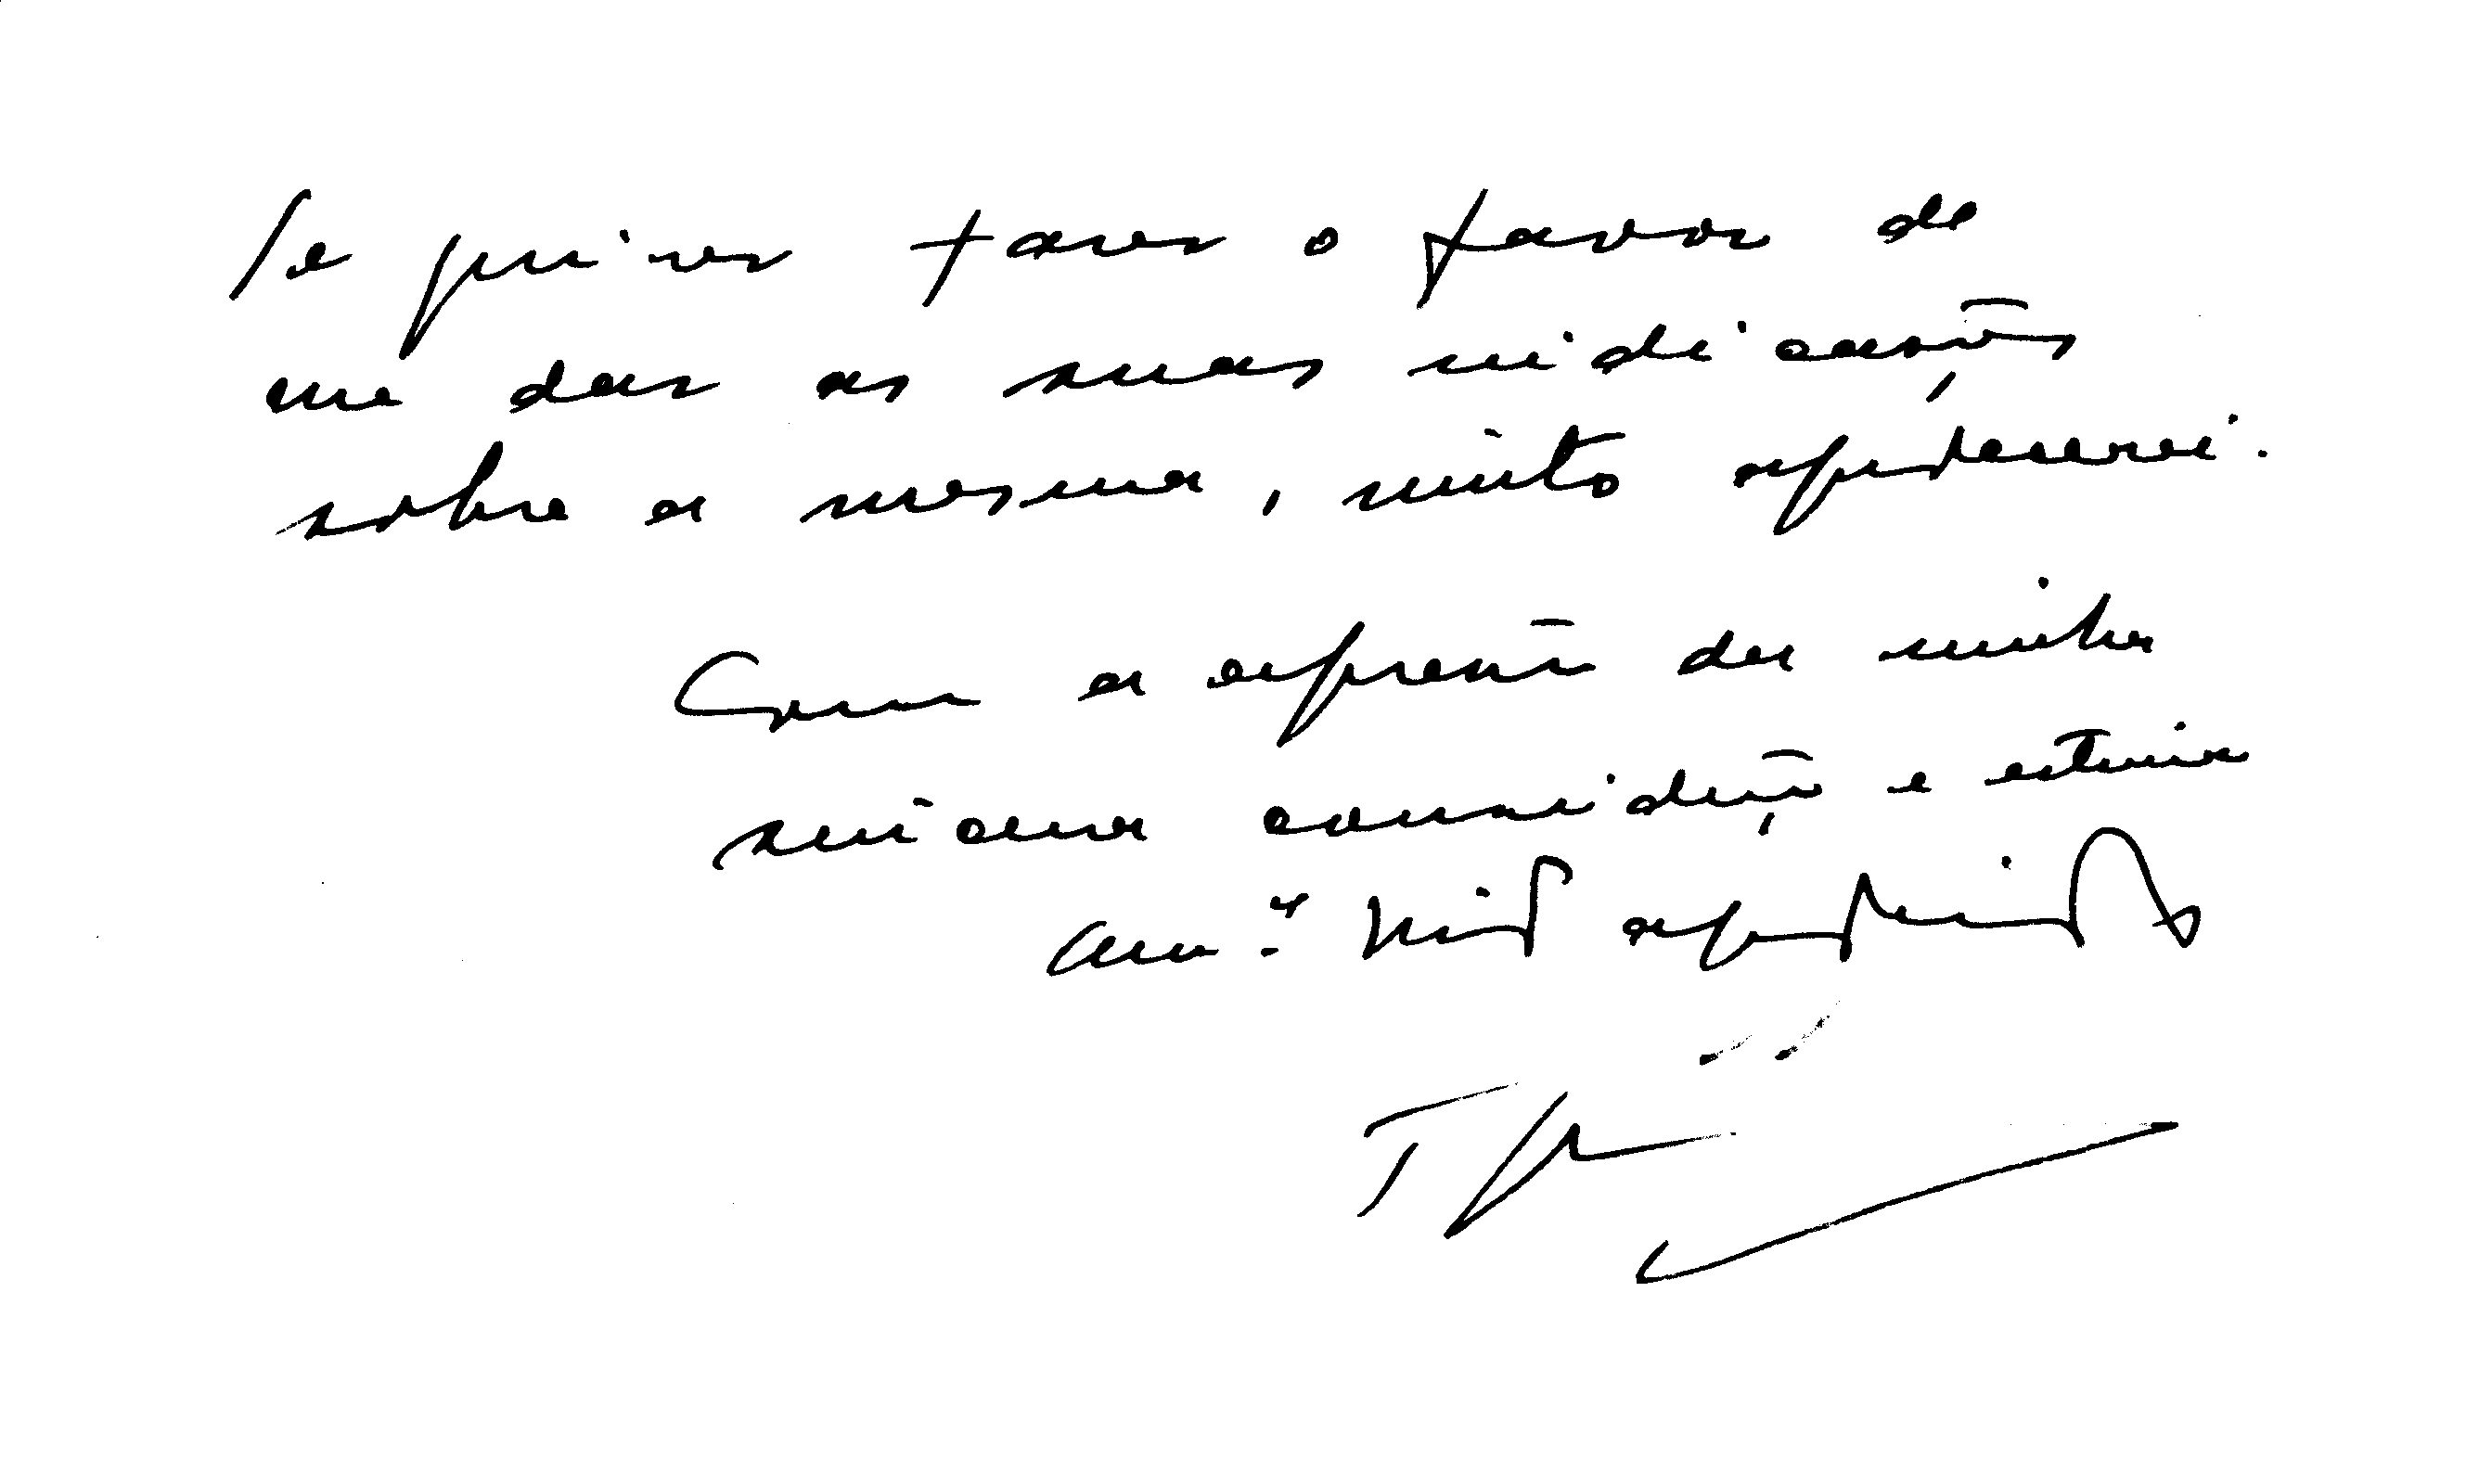 Se quiser fazer o favor de
me dar as suas indicações
sobre a mesma, muito agradecerei.
Com a expressão da minha
sincera consideração e estima
Am.º Muito agradecido